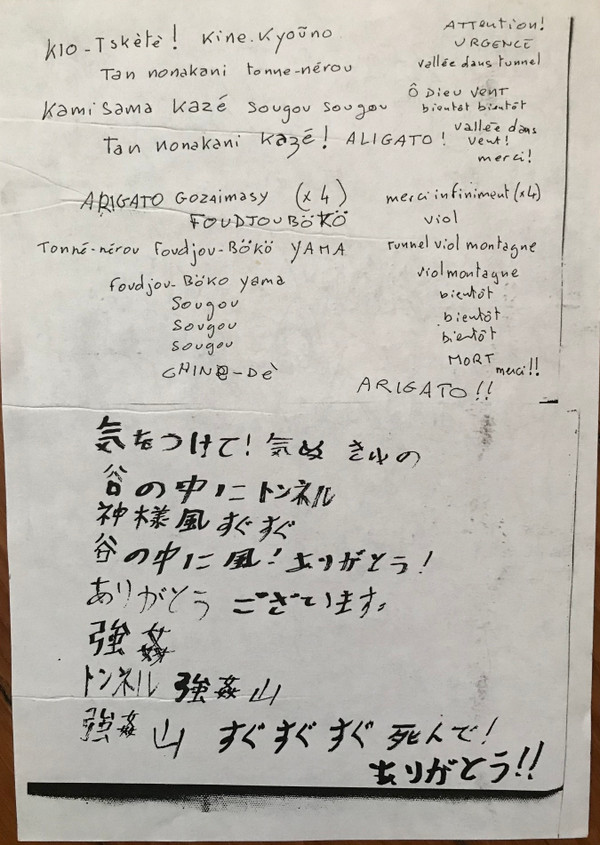 KIO-Tskètè! Kine.Kyoūno
Tan nonakani tonne-nérou
Kami Sama Kazé Sougou Sougou
Tan nonakani Kazé! ALIGATO!
ARIGATO GOZAIMASY (x4)
FOUDJOUBÖKÖ
Tonné-nérou Foudjou-BÖKÖ YAMA
Foudjou-BÖKO Yama
Sougou
Sougou
Sougou
CHINE-Dè
ATTENTION!
URGENCE
Vallée dans tunnel
Ô DIEU VENT
bientôt bientôt
Vallée dans
Vent!
merci!
merci infiniment (x4)
Viol
tunnel viol montagne
Viol montagne
bientôt
bientôt
bientôt
MORT merci!!
ARIGATO!!
気をつけて! 気
谷の中にトンネル
神様風すぐすぐ
谷の中に風!ありがとう!
ありがとうございます。
強姦
トンネル強姦山
強姦山 すぐすぐすぐ 死んで!
ありがとう!!